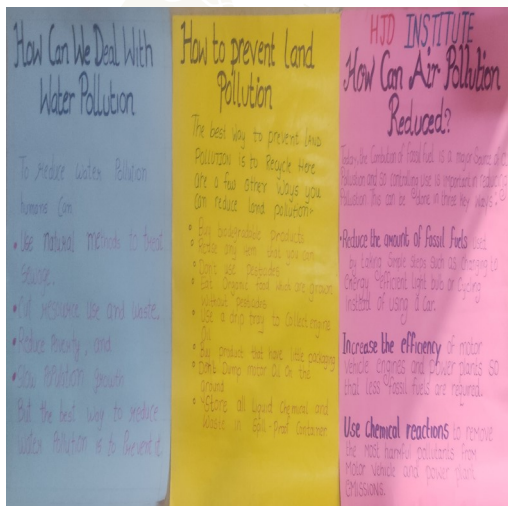 How Can We Deal With
Water Pollution
To Reduce Water Pollution
humans Can
• Use natural methods to treat
Sewage.
• Cut resource use and waste.
• Reduce Poverty, and
• Slow Population growth
But the best way to reduce
Water Pollution is to Prevent it
How to prevent Land
Pollution
The best way to prevent LAND
POLLUTION is to Recycle Here
are a few other ways you
Can reduce land pollution:
• Buy biodegradable products.
• any item that you can
• Don't use pesticides
• Eat Organic food which are grown
without pesticides
• Use a drip tray to Collect engine
Oil
• Buy products that have little packaging
• Don't Dump motor Oil On the
ground
• Store all Liquid Chemical and
Waste in Spill-Proof Container
HJD INSTITUTE
How Can Air Pollution
Reduced?
Today the Combustion of Fossil fuel is a major source of
Pollution and So controlling use is important in reducing
Pollution this can be done in three key ways.
• Reduce the amount of fossil fuels used
by taking Simple steps such as Changing to
Energy efficient light bulb or Cycling
instead of using a Car.
Increase the efficiency of motor
vehicle engines and power plants SO
that less fossil fuels are required.
Use chemical reactions to remove
the most harmful pollutants from
Motor vehicle and power plant
EMISSIONS.